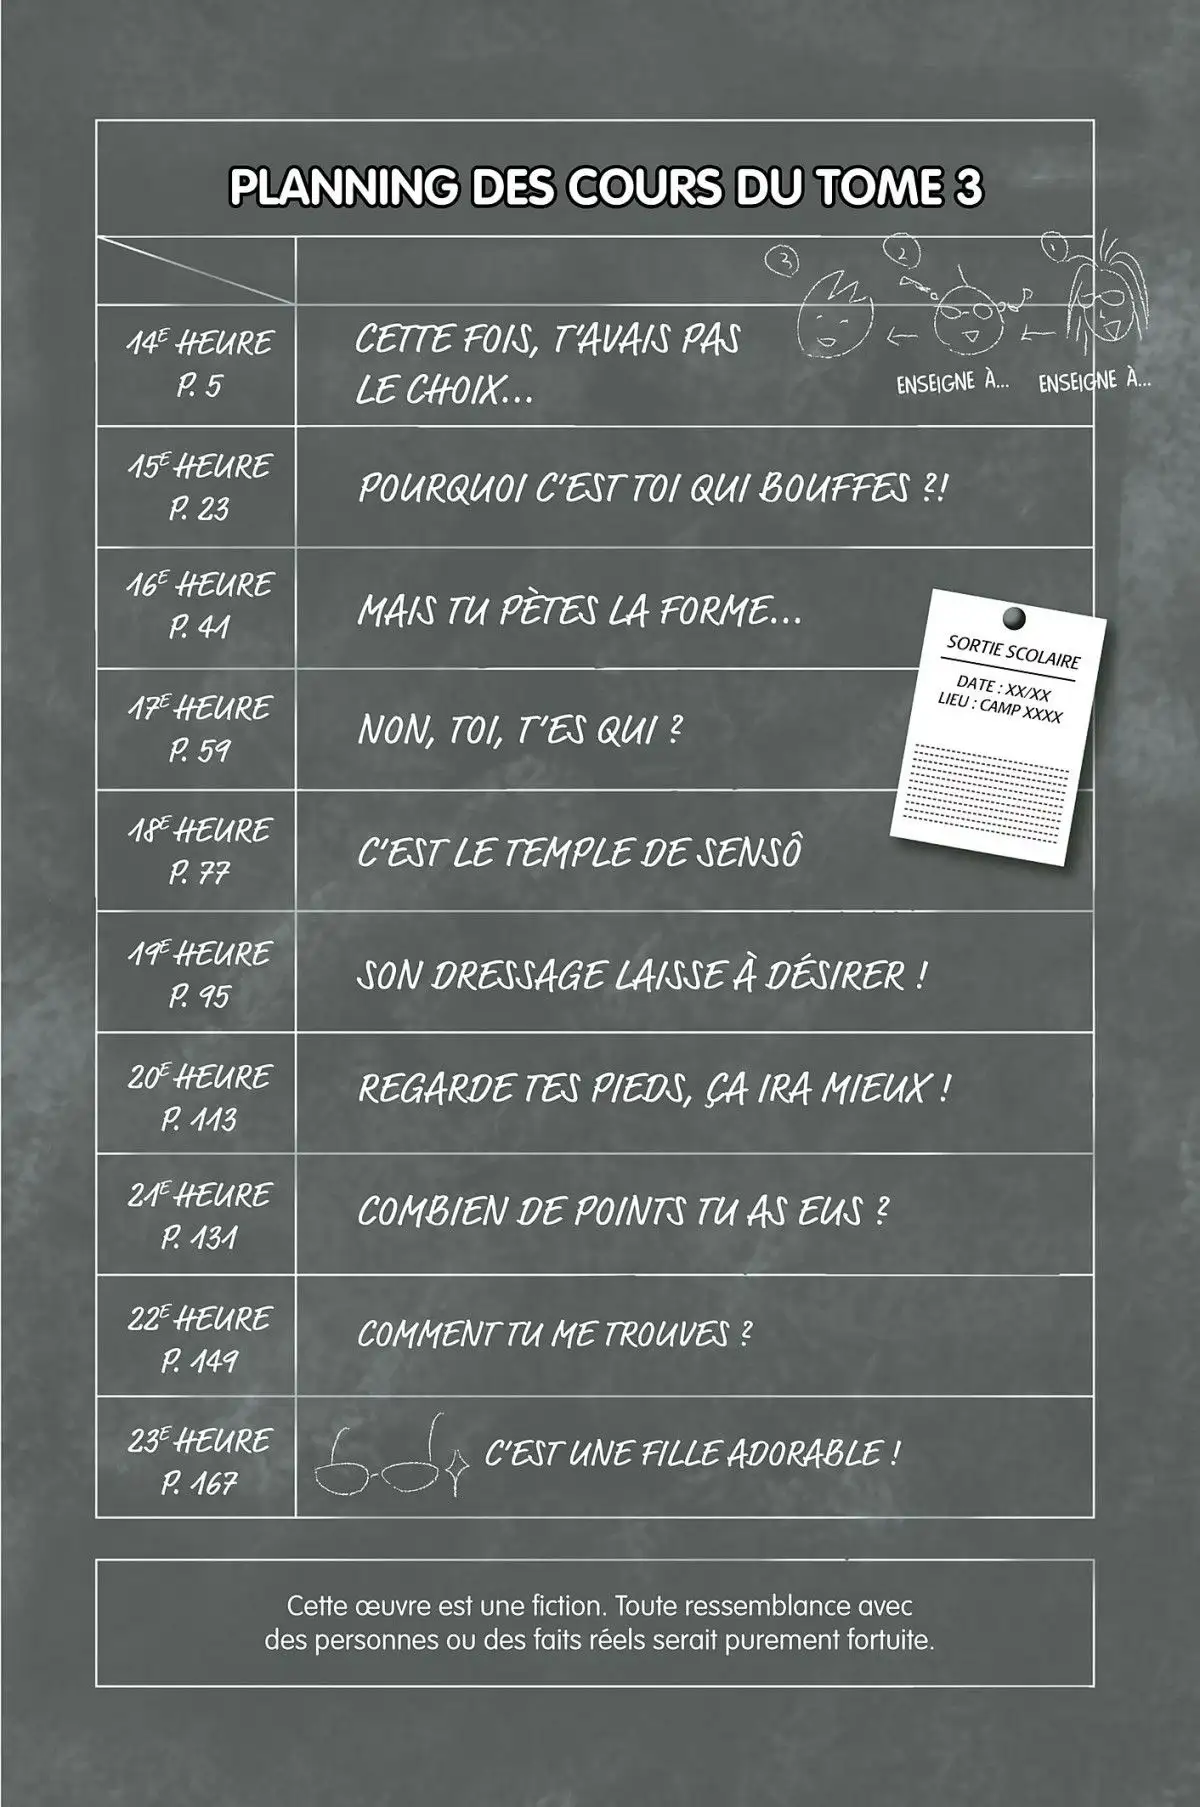 PLANNING DES COURS DU TOME 3
3
2
1
14E HEURE
P. 5
CETTE FOIS, T'AVAIS PAS
LE CHOIX...
ENSEIGNE À...
ENSEIGNE À...
15E HEURE
P. 23
POURQUOI C'EST TOI QUI BOUFFES ?!
16E HEURE
P. 41
MAIS TU PÈTES LA FORME...
SORTIE SCOLAIRE
DATE : XX/XX
LIEU : CAMP XXXX
17E HEURE
P. 59
NON, TOI, T'ES QUI ?
18E HEURE
P. 77
C'EST LE TEMPLE DE SENSÔ
19E HEURE
P. 95
SON DRESSAGE LAISSE À DÉSIRER !
20E HEURE
P. 113
REGARDE TES PIEDS, ÇA IRA MIEUX !
21E HEURE
P. 131
COMBIEN DE POINTS TU AS EUS ?
22E HEURE
P. 149
COMMENT TU ME TROUVES ?
23E HEURE
P. 167
C'EST UNE FILLE ADORABLE !
Cette œuvre est une fiction. Toute ressemblance avec
des personnes ou des faits réels serait purement fortuite.